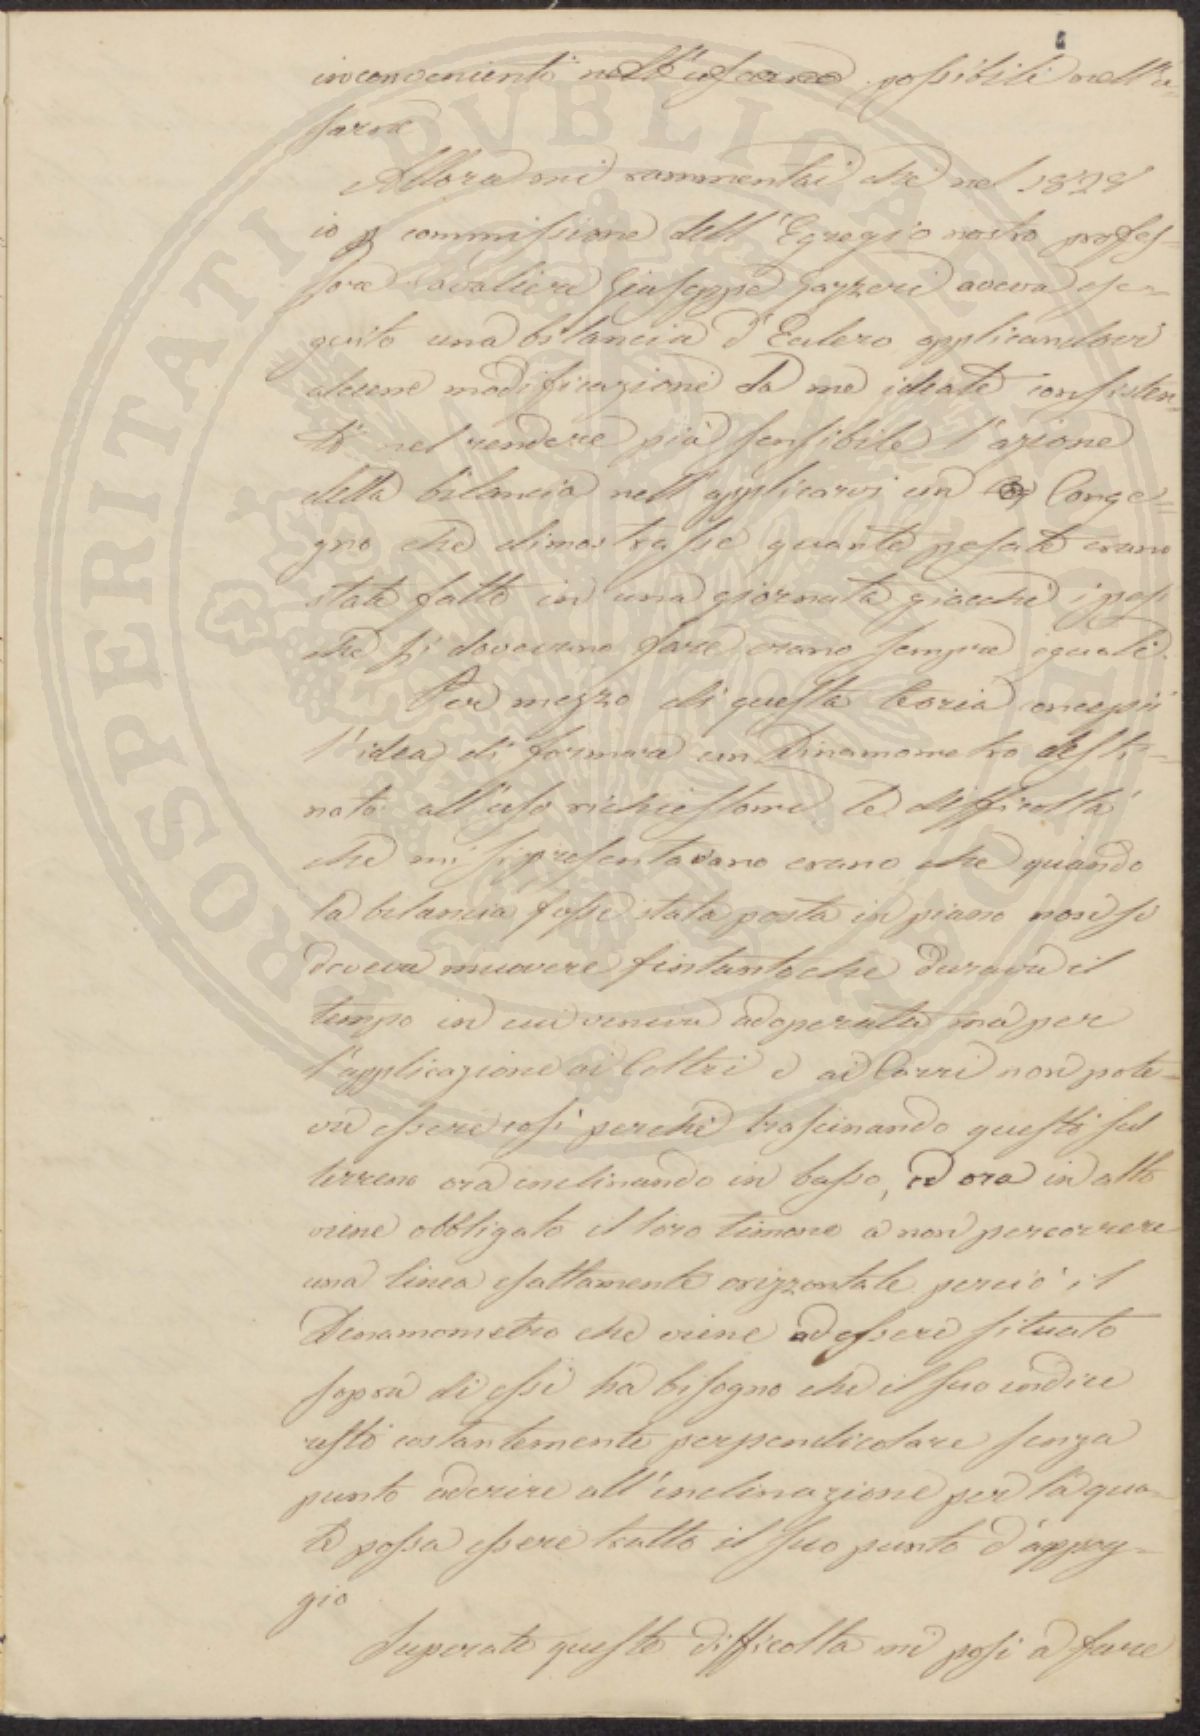 inconvenienti nell'usarne possibili nell'u=
sarne
Allora mi rammentai che nel 1828
io p commissione dell'Egregio nostro profes=
sore Cavaliere Giuseppe Gazzeri aveva ese=
guito una bilancia d'Eulero applicandovi
alcune modificazioni da me ideate consisten=
ti nel rendere più sensibile l'azione
della bilancia nell'applicarvi un Conge=
gno che dimostrasse quante pesate erano
state fatte in una giornata giacche i pesi
che si dovevano fare erano sempre eguali.
Per mezzo di questa teoria concepii
l'idea di formare un Dinamometro desti=
nato all'uso richiestomi le difficoltà
che mi si presentavano erano che quando
la bilancia fosse stata posta in piano non si
doveva muovere fintantoche durava il
tempo in cui veniva adoperata ma per
l'applicazione ai Coltri e ai Carri non pote=
va essere così perche trascinando questi sul
terreno ora inclinando in basso, ed ora in alto
viene obbligato il loro timone a non percorrere
una linea esattamente orizzontale perciò il
Dinamometro che viene ad essere situato
sopra di essi ha bisogno che il suo indice
resti costantemente perpendicolare senza
punto aderire all'inclinazione per la qua=
le possa essere tratto il suo punto d'appog=
gio
Superate queste difficoltà mi posi a fare
PROSPERITATI PVBLICAE AVGENDAE